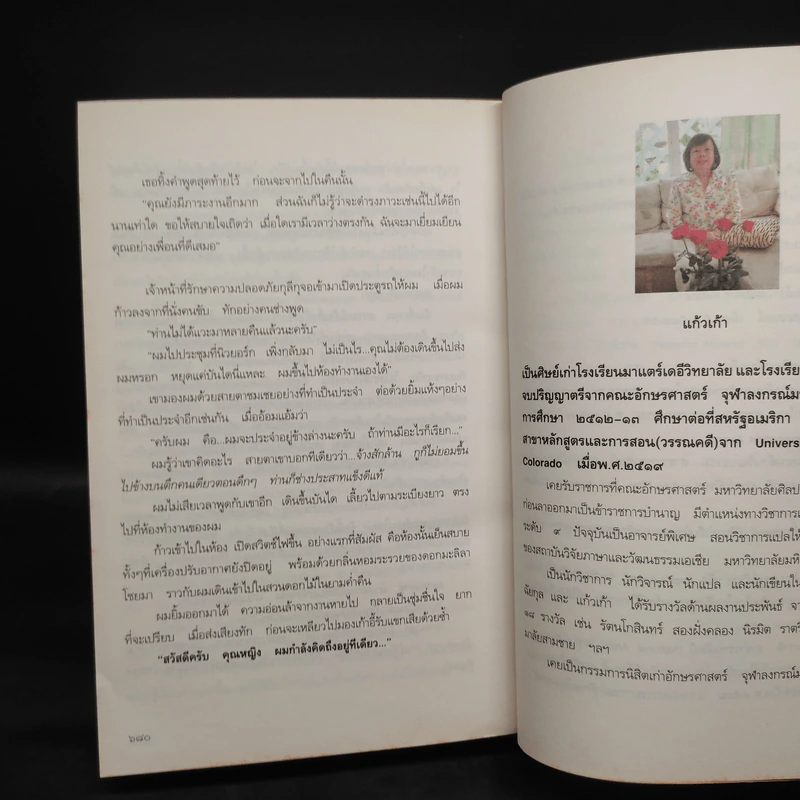 เธอทิ้งคำพูดสุดท้ายไว้ ก่อนจะจากไปในคืนนั้น
“คุณยังมีภาระงานอีกมาก ส่วนฉันก็ไม่รู้ว่าจะดำรงภาวะเช่นนี้ไปได้อีก
นานเท่าใด ขอให้สบายใจเถิดว่า เมื่อใดเรามีเวลาว่างตรงกัน ฉันจะมาเยี่ยมเยียน
คุณอย่างเพื่อนที่ดีเสมอ”
เจ้าหน้าที่รักษาความปลอดภัยกุลีกุจอเข้ามาเปิดประตูรถให้ผม เมื่อผม
ก้าวลงจากที่นั่งคนขับ ทักอย่างคนช่างพูด
“ท่านไม่ได้แวะมาหลายคืนแล้วนะครับ”
“ผมไปประชุมที่นิวยอร์ก เพิ่งกลับมา ไม่เป็นไร...คุณไม่ต้องเดินขึ้นไปส่ง
ผมหรอก หยุดแค่บันไดนี่แหละ ผมขึ้นไปห้องทำงานเองได้”
เขามองผมด้วยสายตาชมเชยอย่างที่ทำเป็นประจำ ต่อด้วยยิ้มแห้งๆอย่าง
ที่ทำเป็นประจำอีกเช่นกัน เมื่ออ้อมแอ้มว่า
“ครับผม คือ...ผมจะประจำอยู่ข้างล่างนะครับ ถ้าท่านมีอะไรก็เรียก...”
ผมรู้ว่าเขาคิดอะไร สายตาเขาบอกทีเดียวว่า...จ้างสักล้าน กูก็ไม่ยอมขึ้น
ไปข้างบนตึกคนเดียวตอนดึกๆ ท่านก็ช่างประสาทแข็งดีแท้
ผมไม่เสียเวลาพูดกับเขาอีก เดินขึ้นบันได เลี้ยวไปตามระเบียงยาว ตรง
ไปที่ห้องทำงานของผม
ก้าวเข้าไปในห้อง เปิดสวิตช์ไฟขึ้น อย่างแรกที่สัมผัส คือห้องนั้นเย็นสบาย
ทั้งๆที่เครื่องปรับอากาศยังปิดอยู่ พร้อมด้วยกลิ่นหอมระรวยของดอกมะลิลา
โชยมา ราวกับผมเดินเข้าไปในสวนดอกไม้ในยามค่ำคืน
ผมยิ้มออกมาได้ ความอ่อนล้าจากงานหายไป กลายเป็นชุ่มชื่นใจ ยาก
ที่จะเปรียบ เมื่อส่งเสียงทัก ก่อนจะเหลียวไปมองเก้าอี้รับแขกเสียด้วยซ้ำ
“สวัสดีครับ คุณหญิง ผมกำลังคิดถึงอยู่ทีเดียว...”
๖๘๐
แก้วเก้า
เป็นศิษย์เก่าโรงเรียนมาแตร์เดอีวิทยาลัย และโรงเรีย
จบปริญญาตรีจากคณะอักษรศาสตร์ จุฬาลงกรณ์ม
การศึกษา ๒๕๑๒-๑๓ ศึกษาต่อที่สหรัฐอเมริกา
สาขาหลักสูตรและการสอน(วรรณคดี)จาก Univers
Colorado เมื่อพ.ศ.๒๕๑๙
เคยรับราชการที่คณะอักษรศาสตร์ มหาวิทยาลัยศิลป
ก่อนลาออกมาเป็นข้าราชการบำนาญ มีตำแหน่งทางวิชาการเ
ระดับ ๙ ปัจจุบันเป็นอาจารย์พิเศษ สอนวิชาการแปลให้
ของสถาบันวิจัยภาษาและวัฒนธรรมเอเชีย มหาวิทยาลัยมหิ
เป็นนักวิชาการ นักวิจารณ์ นักแปล และนักเขียนใน
ฉัยกุล และ แก้วเก้า ได้รับรางวัลด้านผลงานประพันธ์ จา
๑๘ รางวัล เช่น รัตนโกสินทร์ สองฝั่งคลอง นิรมิต ราตรี
มาลัยสามชาย ฯลฯ
เคยเป็นกรรมการนิสิตเก่าอักษรศาสตร์ จุฬาลงกรณ์ม